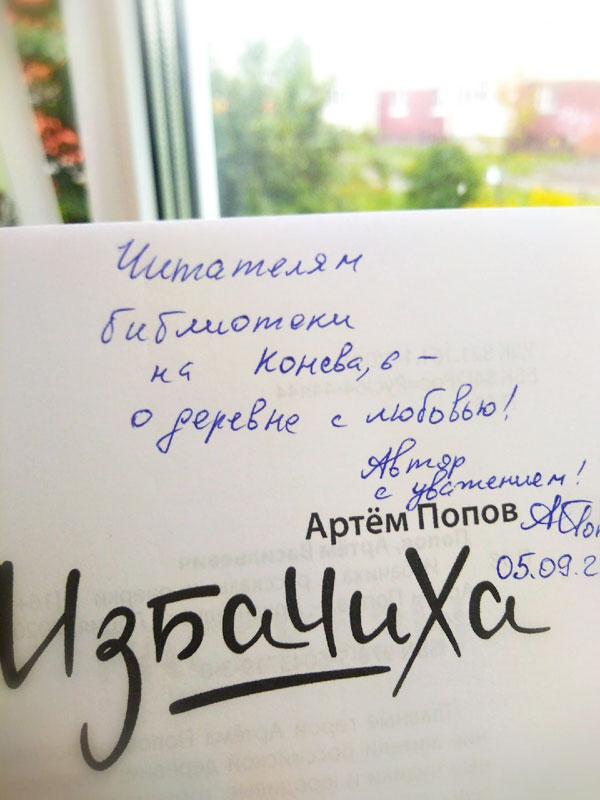 Читателям
библиотеки
на Конева, 6 –
о деревне с любовью!
Автор
с уважением!
Артём Попов
05.09.2
Избачиха